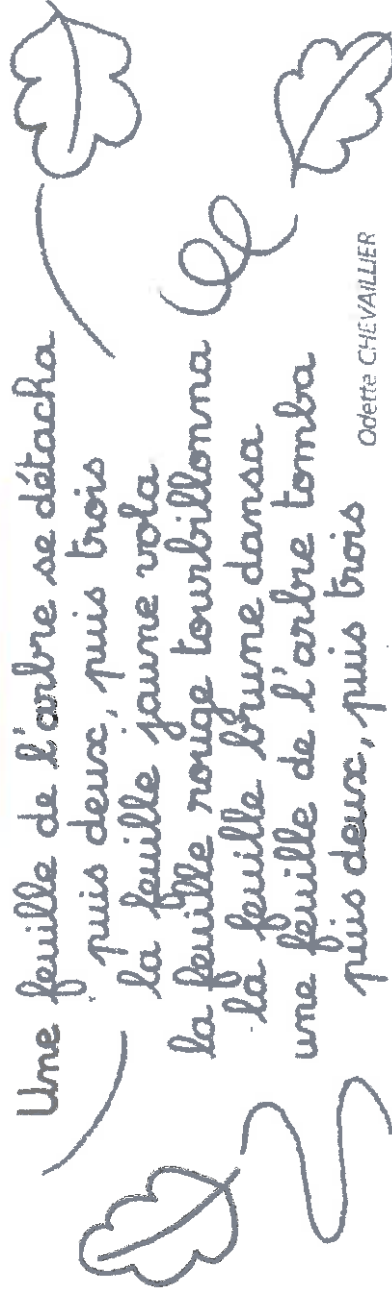 Une feuille de l'arbre se détacha
puis deux, puis trois
la feuille jaune vola
la feuille rouge tourbillonna
la feuille brune dansa
une feuille de l'arbre tomba
puis deux, puis trois
Odette CHEVAILLIER